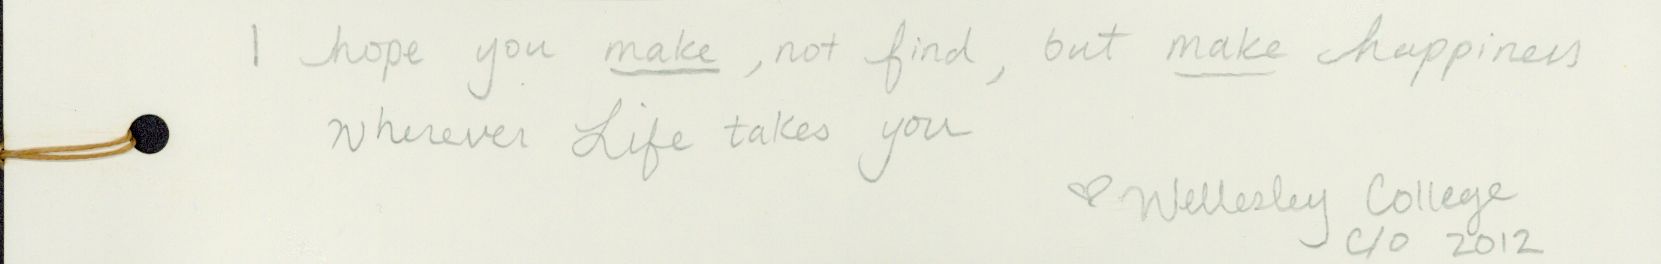 I hope you make, not find, but make happiness
wherever Life takes you
♡ Wellesley College
C/O 2012